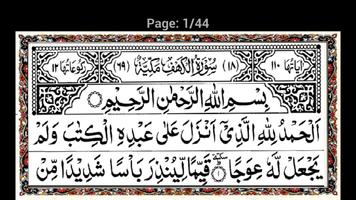 Page: 1/44
اٰیَاتُهَا ١١٠ (١٨) سُوْرَةُ الْكَهْفِ مَكِّيَّةٌ (٦٩) رُكُوْعَاتُهَا ١٢
بِسْمِ اللّٰهِ الرَّحْمٰنِ الرَّحِيْمِ
اَلْحَمْدُ لِلّٰهِ الَّذِيْۤ اَنْزَلَ عَلٰى عَبْدِهِ الْكِتٰبَ وَلَمْ
يَجْعَلْ لَّهٗ عِوَجًا ۝ قَيِّمًا لِّيُنْذِرَ بَاْسًا شَدِيْدًا مِّنْ